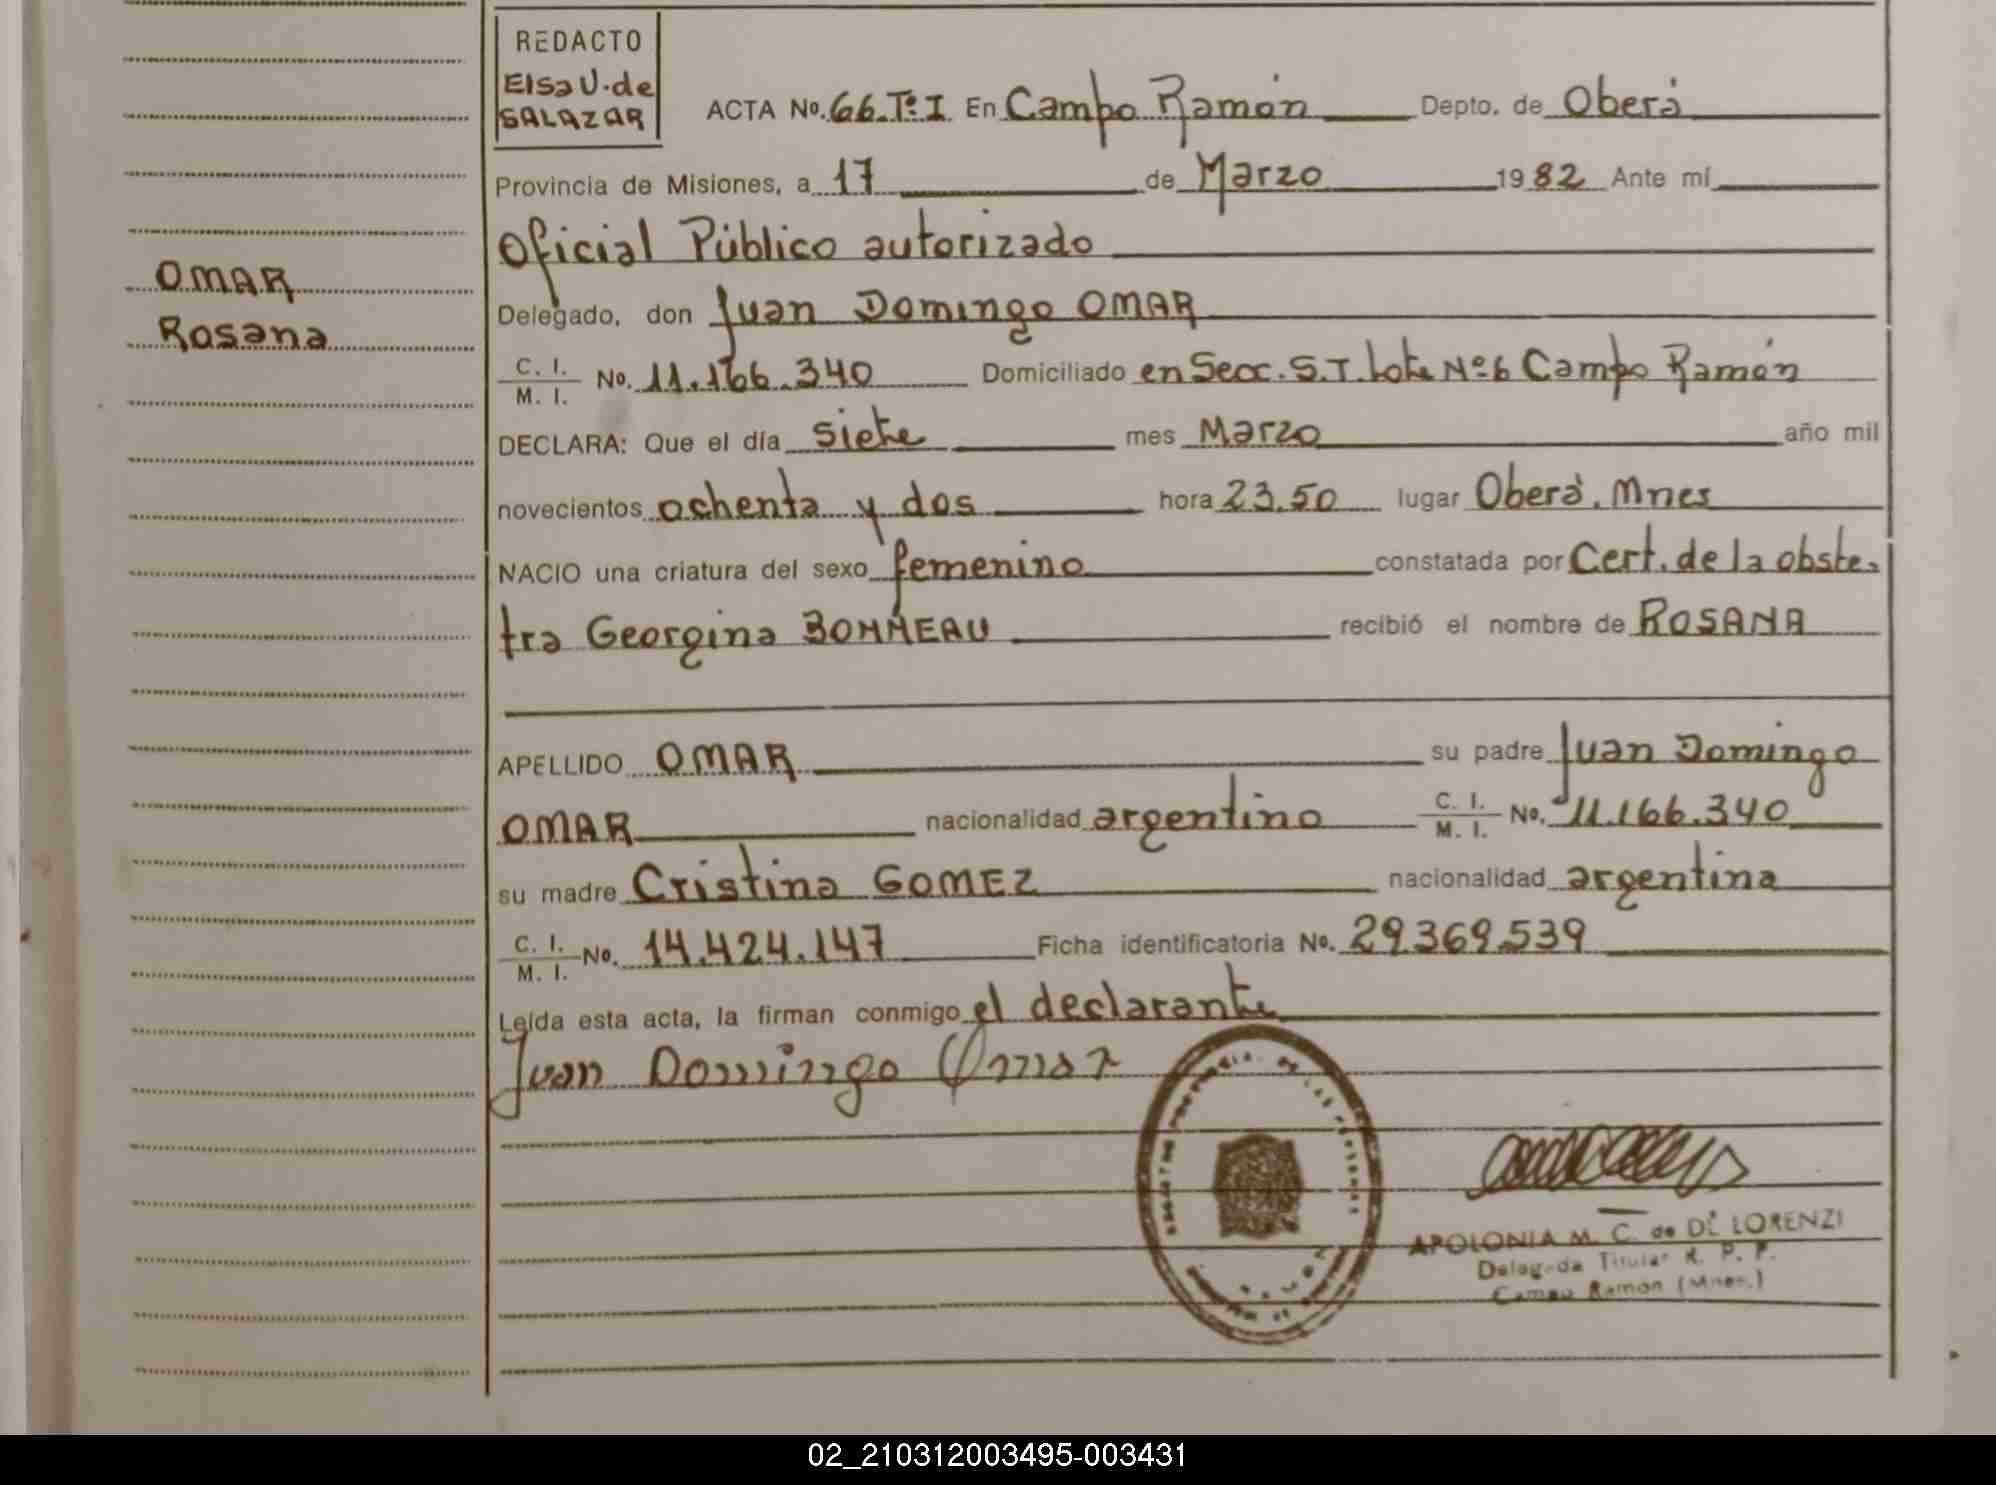 REDACTO
Elsa U. de
SALAZAR
ACTA No. 66.Tº.I En Campo Ramón Depto. de Oberá
Provincia de Misiones, a 17 de Marzo 1982 Ante mí
Oficial Público autorizado
OMAR
Rosana
Delegado, don Juan Domingo OMAR
C. I.
M. I. No. 11.166.340 Domiciliado en Secc. S.T. Lote Nº6 Campo Ramón
DECLARA: Que el día siete mes Marzo año mil
novecientos ochenta y dos hora 23.50 lugar Oberá. Mnes
NACIO una criatura del sexo femenino constatada por Cert. de la obste-
tra Georgina recibió el nombre de ROSANA
APELLIDO OMAR su padre Juan Domingo
OMAR nacionalidad argentino C. I. M. I. No. 11.166.340
su madre Cristina GOMEZ nacionalidad argentina
C. I. M. I. No. 14.424.147 Ficha identificatoria No. 29.369.539
Leída esta acta, la firman conmigo el declarante
Juan Domingo Omar
APOLONIA M. C. de DE LORENZI
Delegada Titular R. P. P.
Campo Ramon (Mnes.)
02_210312003495-003431